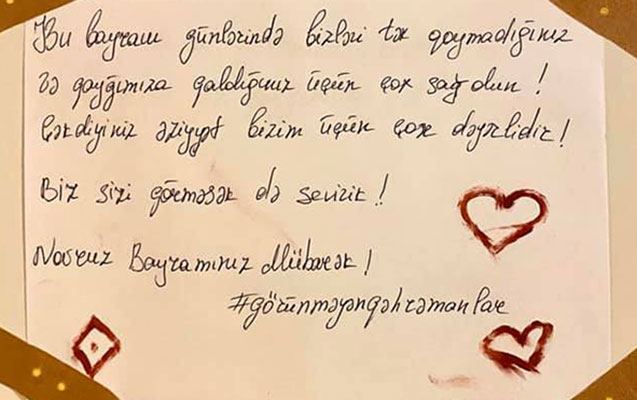 Bu bayram günlərində bizləri tək qoymadığınız
və qayğımıza qaldığınız üçün çox sağ olun!
Çəkdiyiniz əziyyət bizim üçün çox dəyərlidir!
Biz sizi görməsək də sevirik!
Novruz Bayramınız Mübarək!
#görünməyənqəhrəmanlar